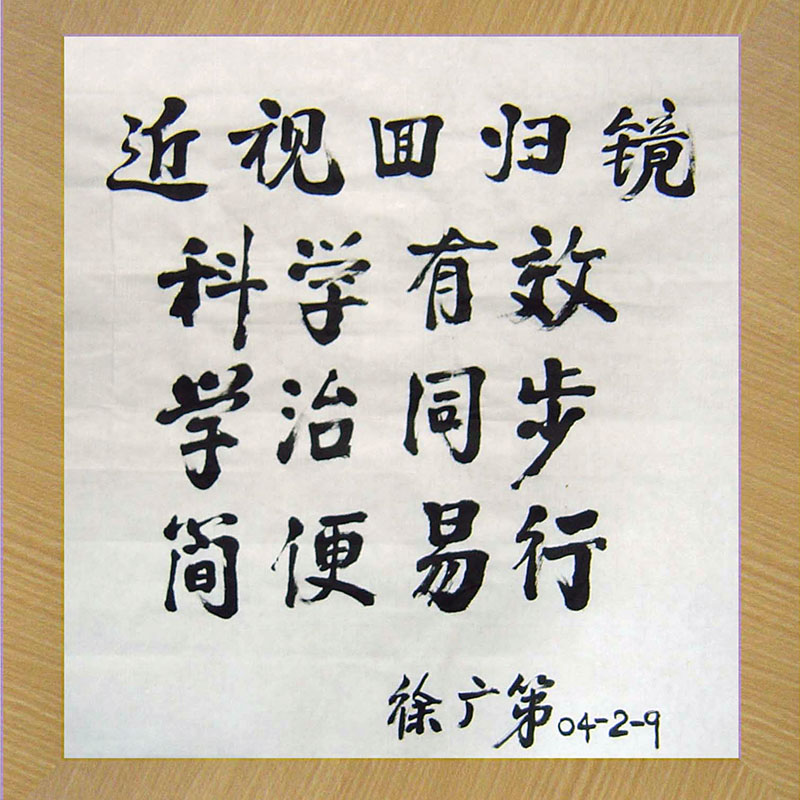 近视回归镜
科学有效
学治同步
简便易行
徐广第 04-2-9